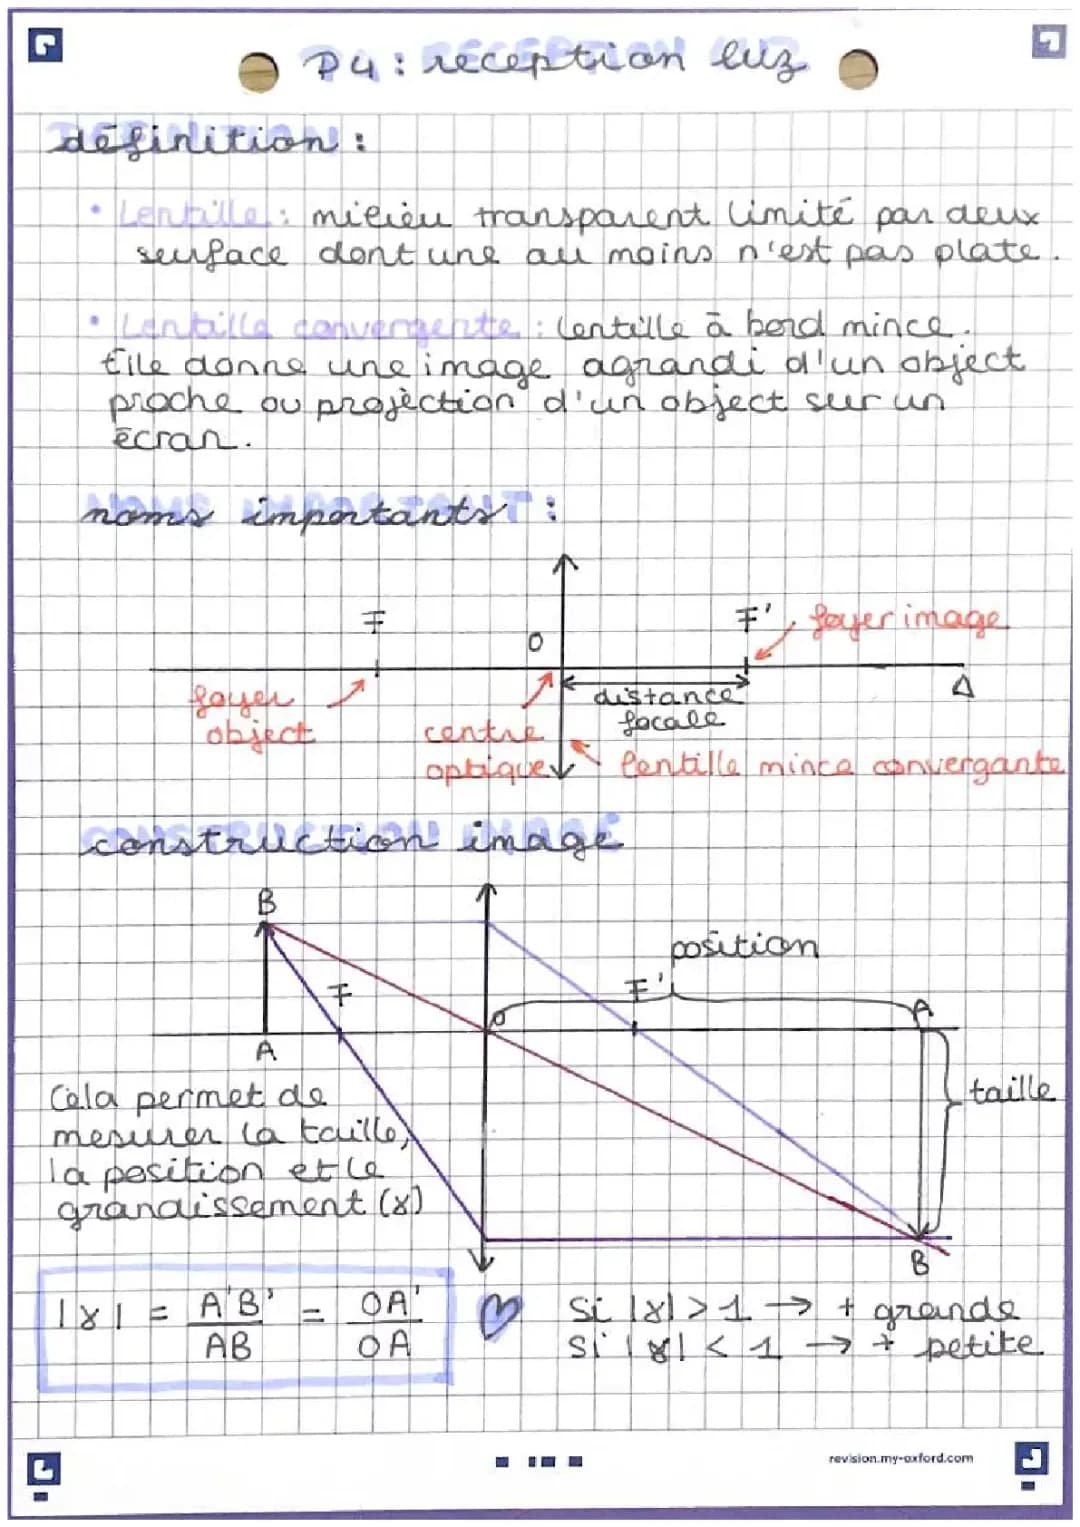 P4 : réception luz
définition :
• Lentille : milieu transparent limité par deux
surface dont une au moins n'est pas plate.
• Lentille convergente : lentille à bord mince.
Elle donne une image agrandi d'un object
proche ou projèction d'un object sur un
écran.
noms importants :
F
O
F'
foyer image
foyer
object
centre
optique
distance
focale
Δ
lentille mince convergante
construction image
B
position
F
F'
O
A
A
taille
Cela permet de
mesurer la taille,
la position et le
grandissement (γ)
B
|γ| = A'B' / AB = OA' / OA
Si |γ| > 1 → + grande
Si |γ| < 1 → + petite
revision.my-oxford.com